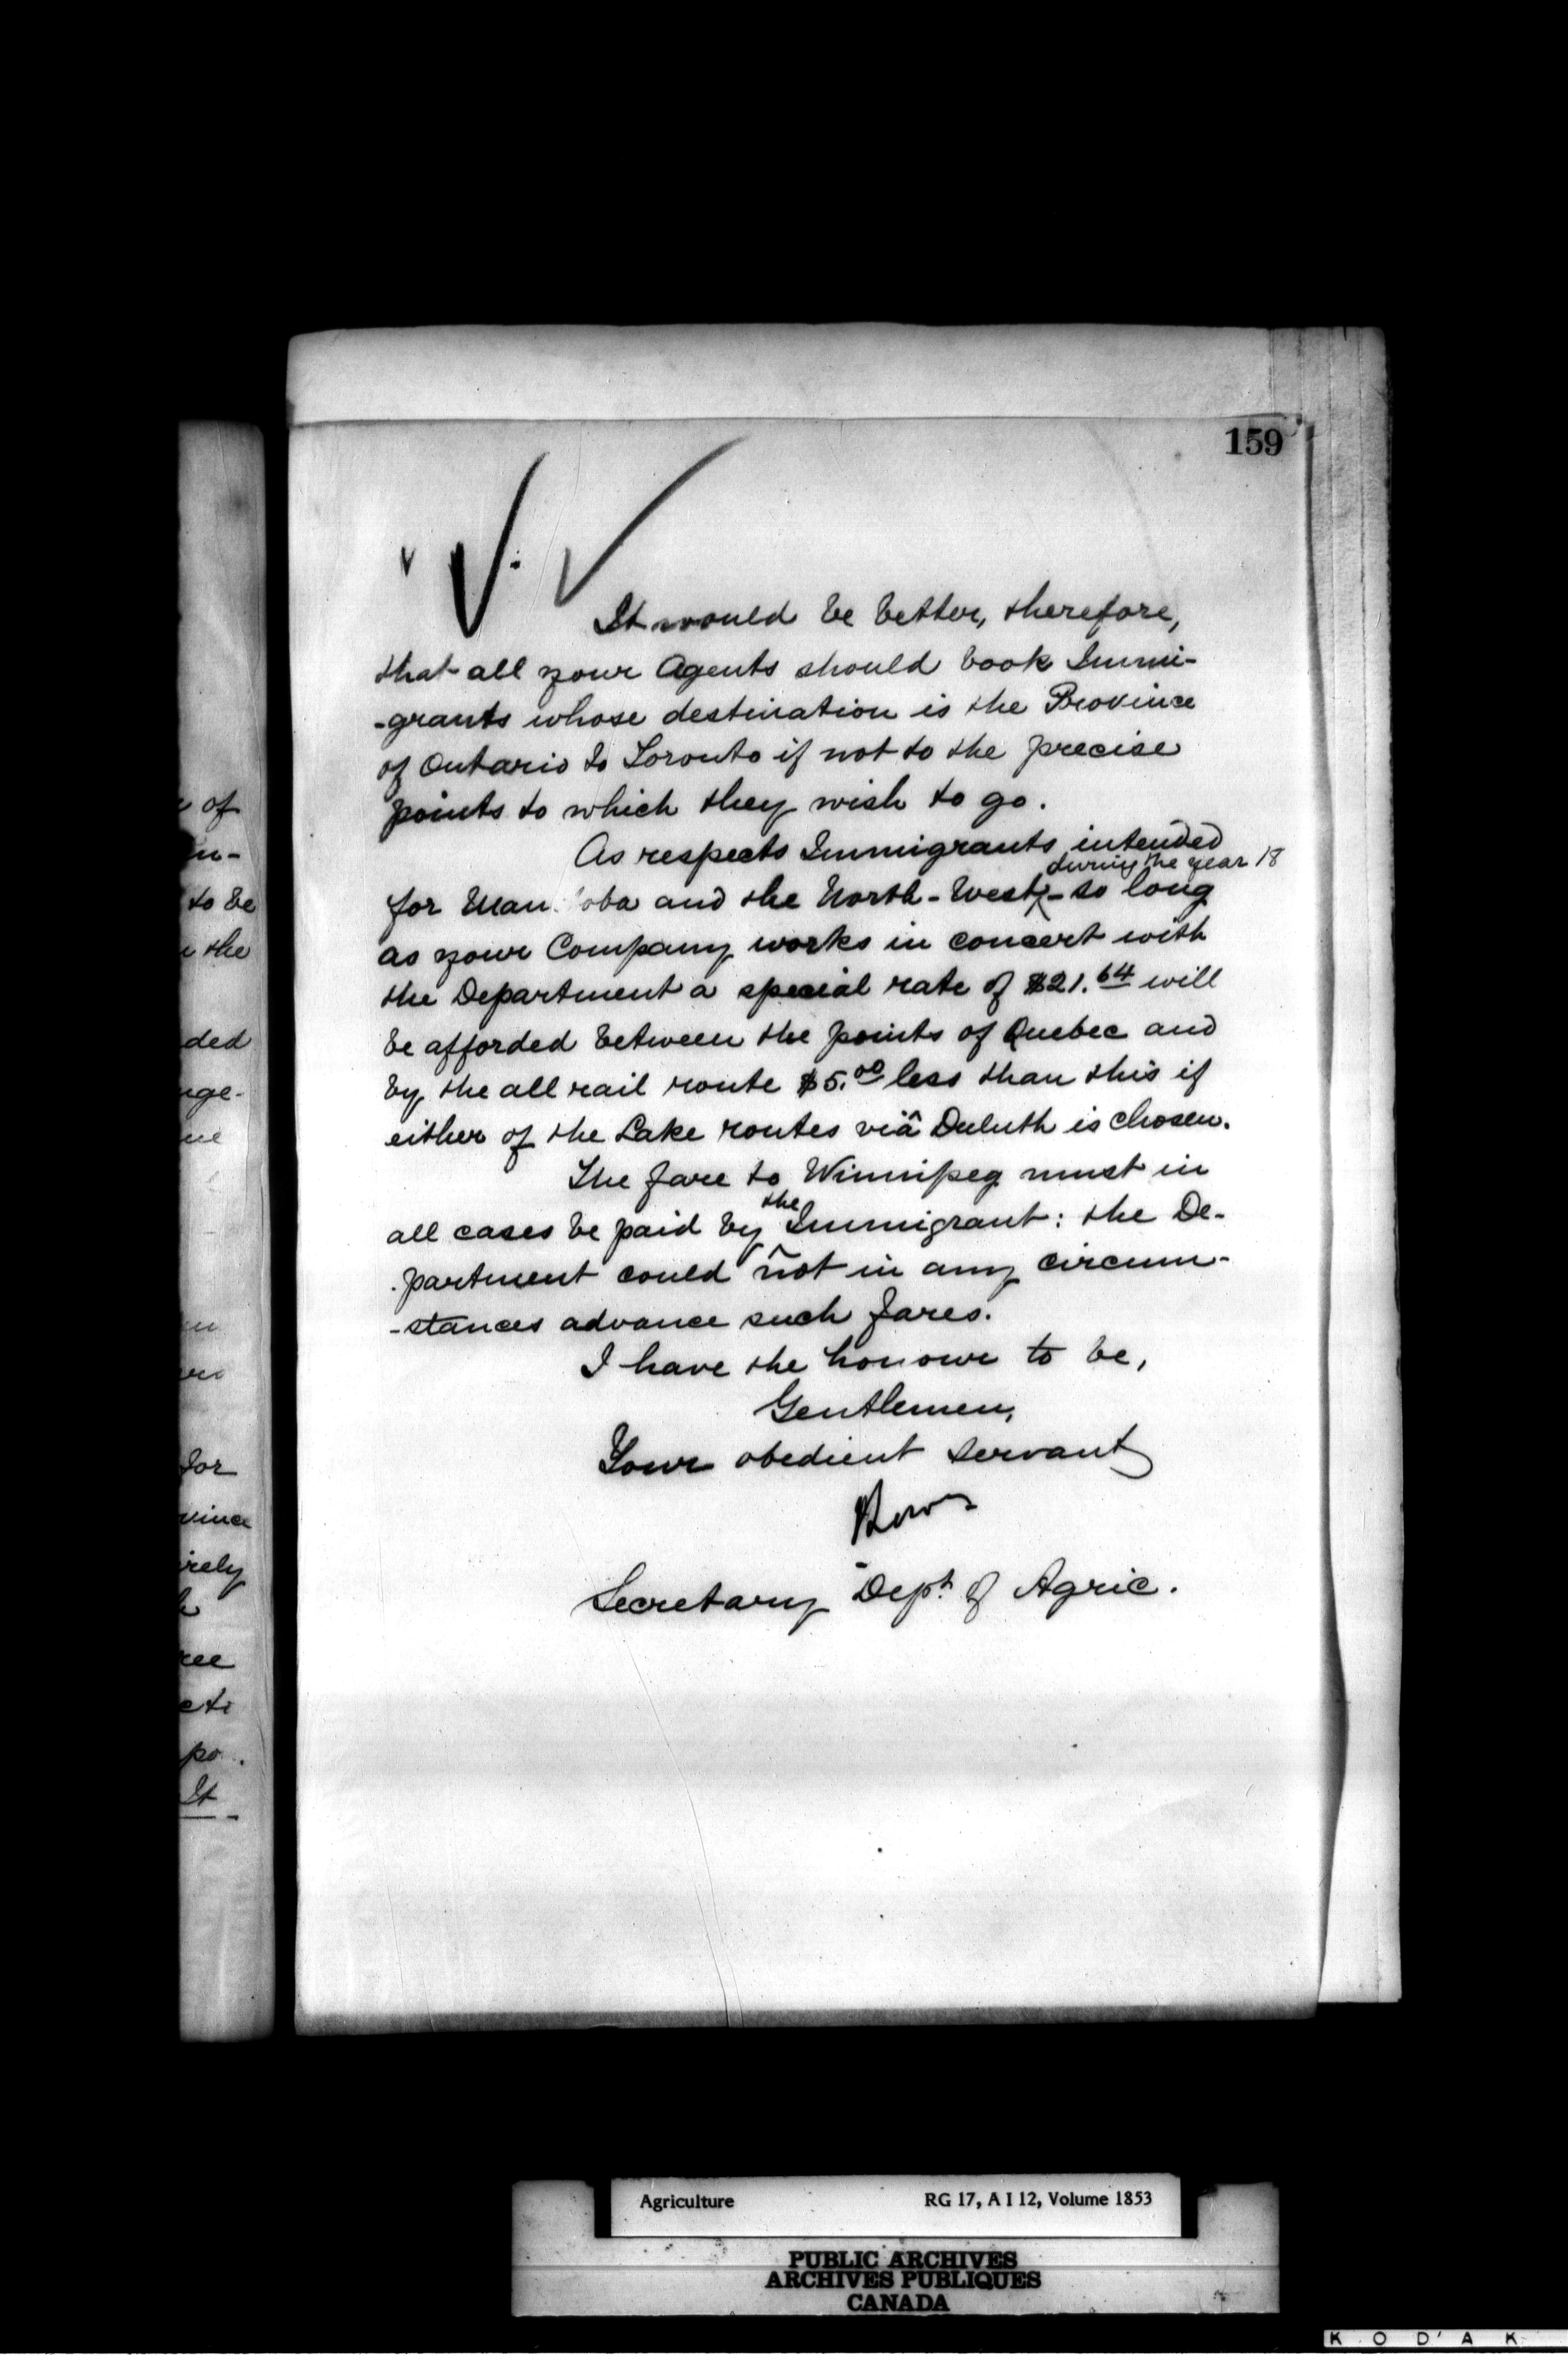 159
It would be better, therefore,
that all your Agents should book Immi-
-grants whose destination is the Province
of Ontario to Toronto if not to the precise
points to which they wish to go.
As respects Immigrants intended
during the year 18
for Man oba and the North-West, - so long
as your Company works in concert with
the Department a special rate of $21.64 will
be afforded between the points of Quebec and
by the all rail route $5.00 less than this if
either of the Lake routes viâ Duluth is chosen.
The fare to Winnipeg must in
all cases be paid by the Immigrant: the De-
-partment could not in any circum-
-stances advance such fares.
I have the honour to be,
Gentlemen,
Your obedient servant
Secretary Dept. of Agric.
of
to be
the
ded
for
It
Agriculture RG 17, A I 12, Volume 1853
PUBLIC ARCHIVES
ARCHIVES PUBLIQUES
CANADA
KODAK